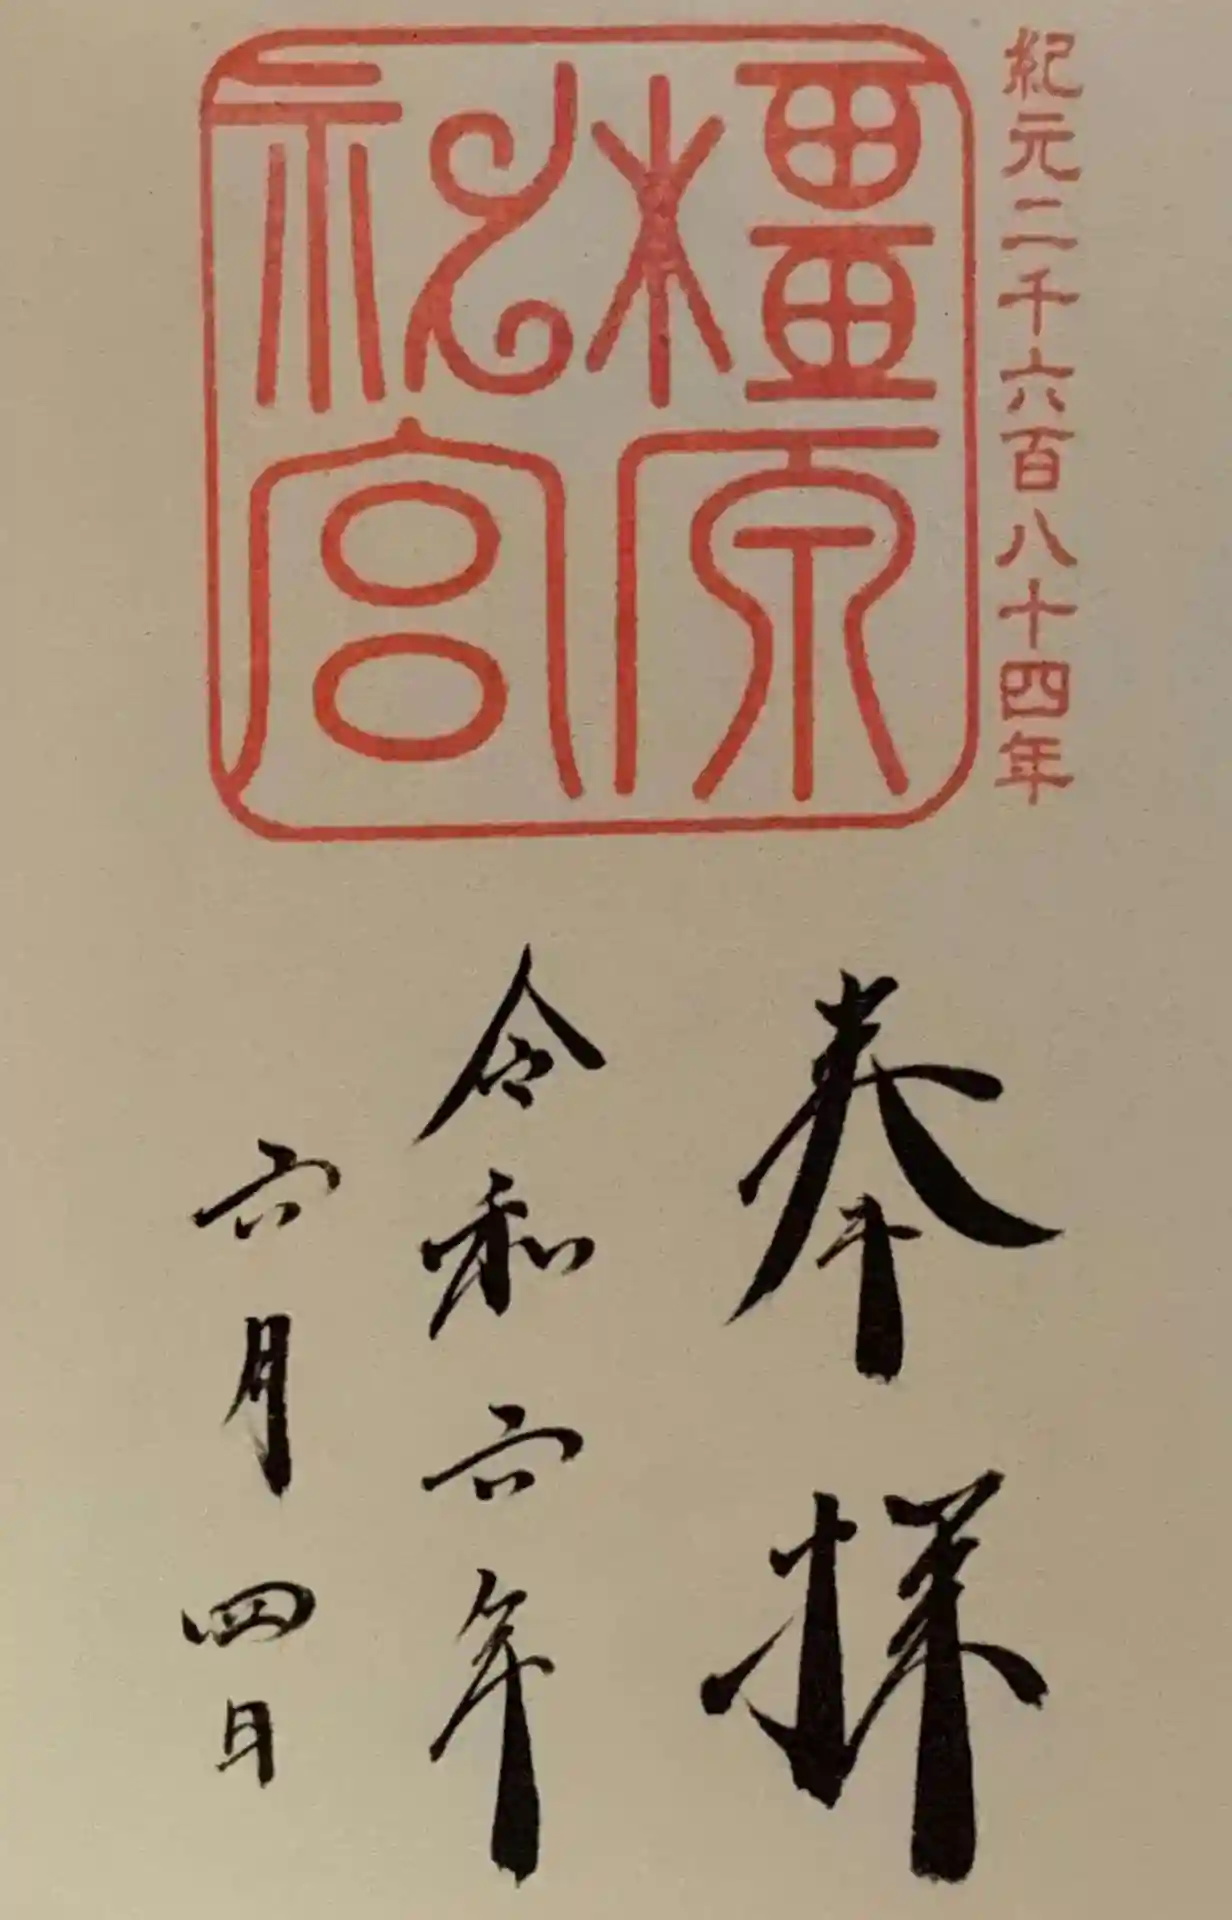 紀元二千六百八十四年
橿原
神宮
奉拝
令和六年
六月四日